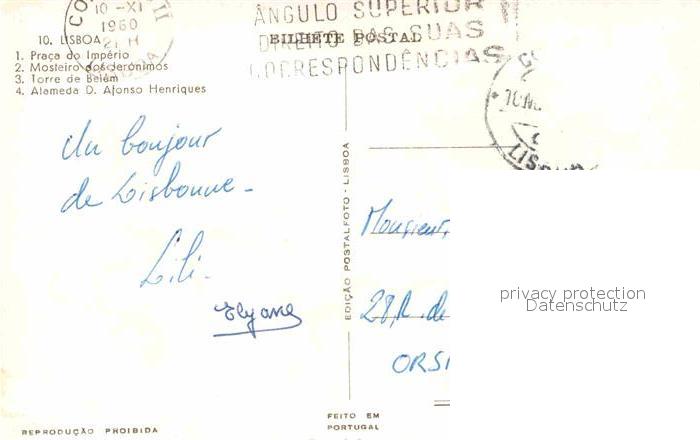 10 - XI
1960
21 H
ÂNGULO SUPERIOR
DIREITO DAS SUAS
CORRESPONDÊNCIAS
BILHETE POSTAL
10. LISBOA
1. Praça do Império
2. Mosteiro dos Jerónimos
3. Torre de Belém
4. Alameda D. Afonso Henriques
Un bonjour
de Lisbonne -
Lili.
Elyane
EDIÇÃO POSTALFOTO - LISBOA
Monsieur,
28, R. de
ORSI
privacy protection
Datenschutz
REPRODUÇÃO PROIBIDA
FEITO EM
PORTUGAL